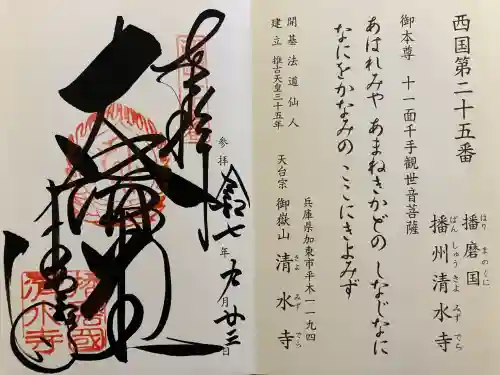 西国第二十五番
播磨国
はり まのくに
播州清水寺
ばん しゅう きよ みず でら
御本尊 十一面千手観世音菩薩
あはれみや あまねきかどの しなじなに
なにをかなみの ここにきよみづ
開基 法道仙人
建立 推古天皇三十五年
兵庫県加東市平木一一九四
天台宗 御嶽山 清水寺
きよ みず でら
奉拝
参拝 令和七年九月廿三日
大悲閣
清水寺